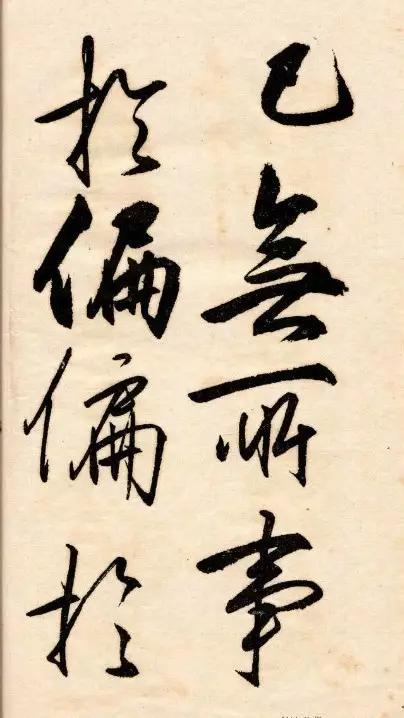 已無所事
於偏偏於